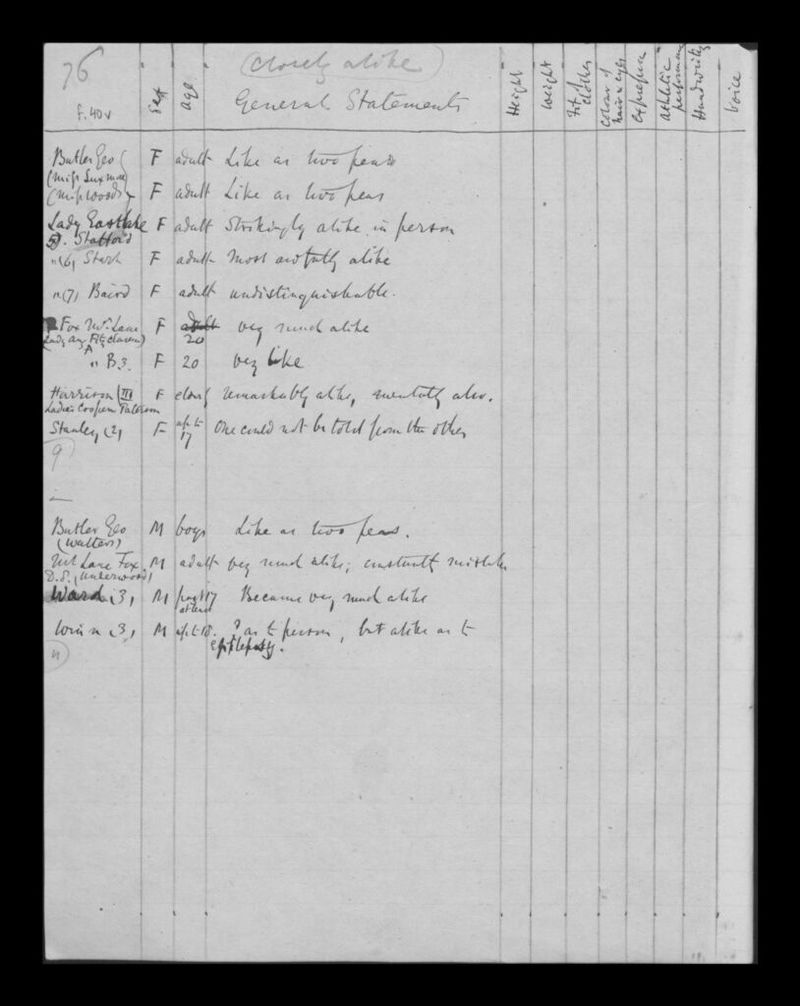 76
(closely alike)
F. 40v
Sex
age
General Statements
Height
Weight
Fit of clothes
Colour of hair & eyes
Expression
Athletic performan
Handwriting
Voice
Butler Geo F adult Like as two peas
(Miss Luxmoo)
(Miss Woods) F adult Like as two peas
Lady Eastlake F adult Strikingly alike in person
5). Stafford
"(6) F adult Most awfully alike
"(7) Baird F adult undistinguishable.
Fox Mt. Lane F adult very much alike
(Lady Aug Fitzclarence) 20
" B.3. F 20 very like
Harrison (III F elderly remarkably alike, mentally also.
Ladies Cooper Paterson
Stanley (2) F up to 17 One could not be told from the other
9)
Butler Geo M boys Like as two peas.
(Walters)
Mt Lane Fox. M adult very much alike; constantly mistaken
D.S. (Underwood)
Ward (3) M past 17 Became very much alike
at least
(3) M up to 18. ? as to person, but alike as to
epilepsy.